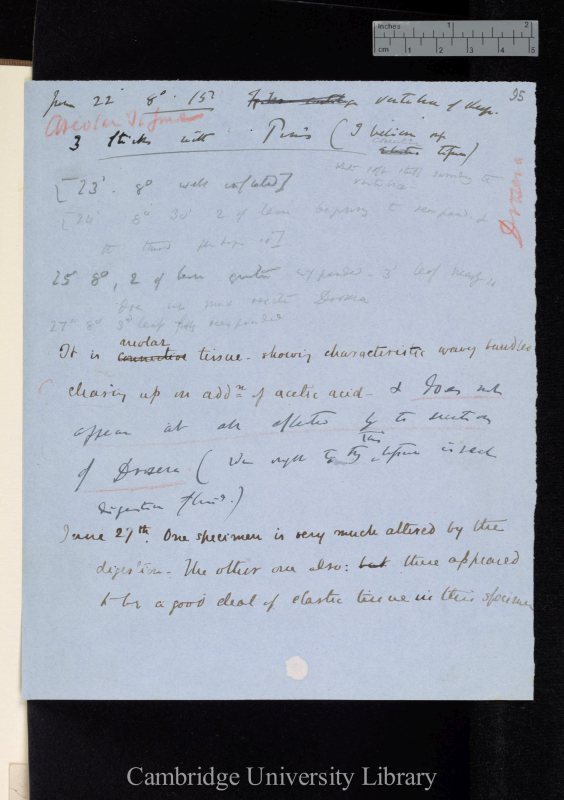 inches 1 2
cm 1 2 3 4 5
June 22 8° . 15' vertebra of sheep. 95
Areolar Tissue
3 sticks with (I believe
Drosera
[23' . 8° well inflected]
[24' 8° 30' 2 of leaves beginning to reexpand &
the third perhaps so]
25 8°, 2 of leaves greatly expanded - 3' leaf nearly so
Drosera
27th 8° 3d leaf fully reexpanded
It is connective areolar tissue - showing characteristic wavy bundles
clearing up on addn of acetic acid - & does not
appear at all affected by the secretion
of Drosera (We ought to try this tissue in such
digestive fluid.)
June 27th. One specimen is very much altered by the
digestion - The other one also: but there appeared
to be a good deal of elastic tissue in this specimen
Cambridge University Library